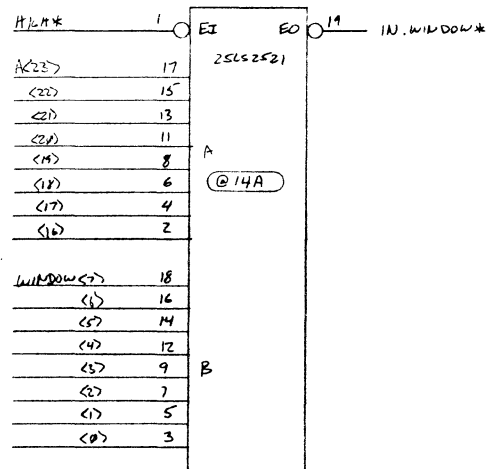 HIGH* 1 EI EO 19 IN.WINDOW*
25LS2521
A<23> 17
<22> 15
<21> 13
<20> 11
A
<19> 8
<18> 6
@ 14A
<17> 4
<16> 2
WINDOW<7> 18
<6> 16
<5> 14
<4> 12
<3> 9 B
<2> 7
<1> 5
<0> 3